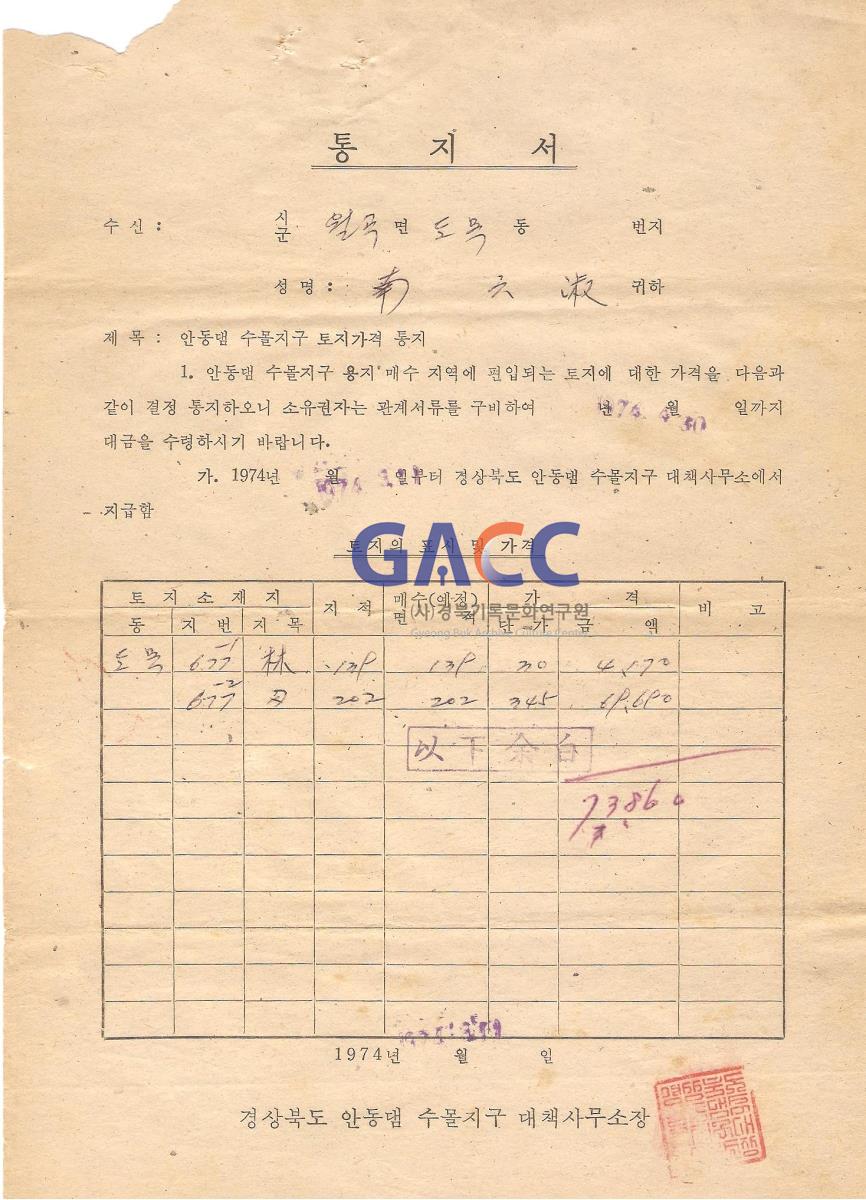 통 지 서
수 신 : 시 군 월곡 면 도목 동 번지
성 명 : 南 淑 귀하
제 목 : 안동댐 수몰지구 토지가격 통지
1. 안동댐 수몰지구 용지 매수 지역에 편입되는 토지에 대한 가격을 다음과
같이 결정 통지하오니 소유권자는 관계서류를 구비하여 년 월 일까지
1974. 4. 30
대금을 수령하시기 바랍니다.
가. 1974년 월 일부터 경상북도 안동댐 수몰지구 대책사무소에서
지급함
GACC
토지의 표시 및 가격
(사)경북기록문화연구원
토 지 소 재 지 지 적 매수(예정) 면 적 가 격 비 고
동 지 번 지 목 단 가 금 액
도목 677-1 林 139 139 30 4,170
677-2 田 202 202 345 69,690
以下余白
73860
1974년 월 일
경상북도 안동댐 수몰지구 대책사무소장